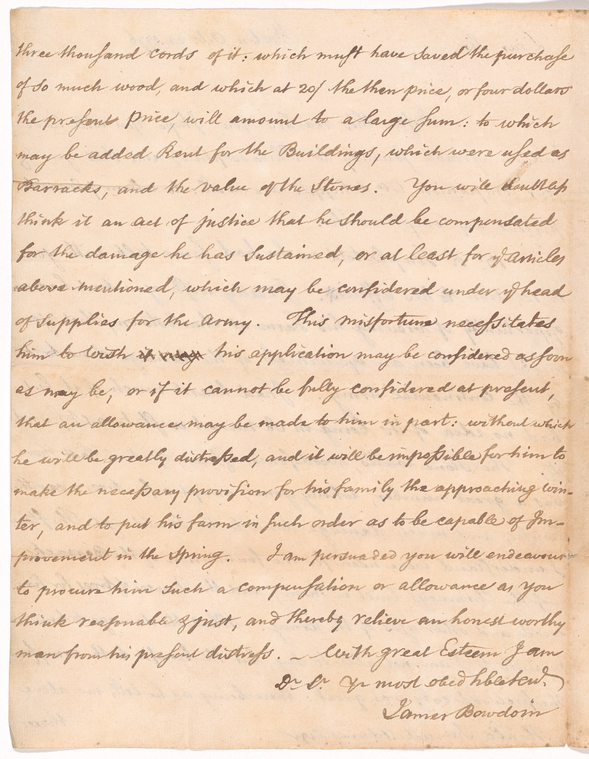 three thousand cords of it: which must have saved the purchase
of so much wood, and which at 20/ the then price, or four dollars
the present price, will amount to a large sum: to which
may be added Rent for the Buildings, which were used as
Barracks, and the value of the Stones. You will doubtless
think it an act of justice that he should be compensated
for the damage he has sustained, or at least for ye articles
above mentioned, which may be considered under ye head
of supplies for the Army. This misfortune necessitates
him to wish his application may be considered as soon
as may be, or if it cannot be fully considered at present,
that an allowance may be made to him in part: without which
he will be greatly distressed, and it will be impossible for him to
make the necessary provision for his family the approaching win-
ter, and to put his farm in such order as to be capable of Im-
provement in the Spring. I am persuaded you will endeavour
to procure him such a compensation or allowance as you
think reasonable & just, and thereby relieve an honest worthy
man from his present distress. – With great Esteem I am
Dr. Sr. Yr most obedt hble servt.
James Bowdoin